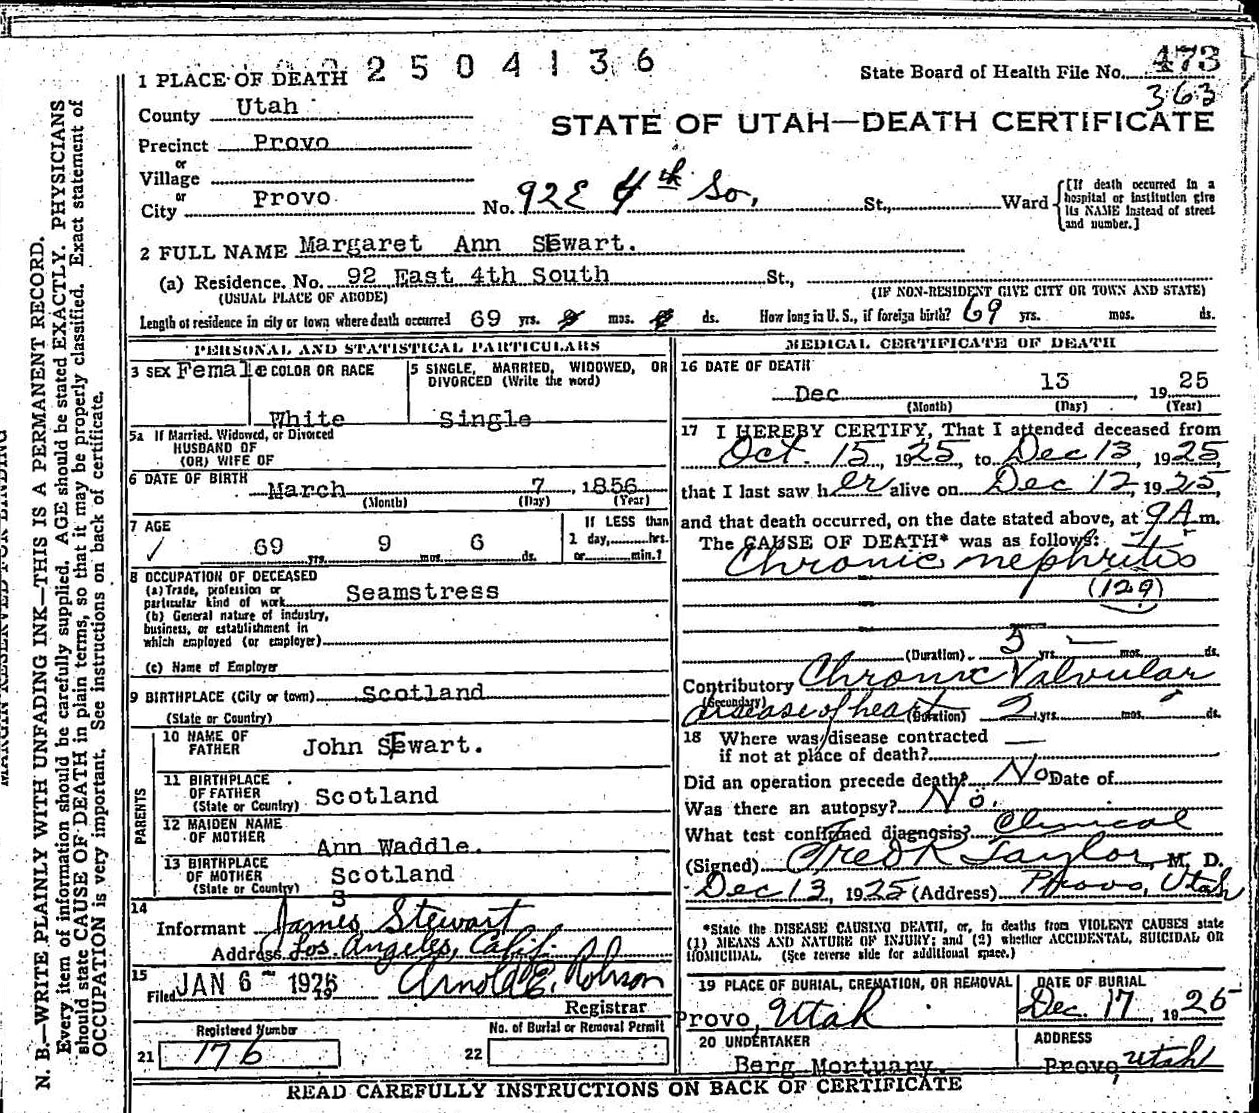 2504136
1 PLACE OF DEATH
State Board of Health File No. 473
363
County Utah
STATE OF UTAH—DEATH CERTIFICATE
Precinct Provo
or
Village
or
City Provo No. 92 E 4th So. St., Ward
[If death occurred in a hospital or institution give its NAME instead of street and number.]
2 FULL NAME Margaret Ann Stewart.
(a) Residence. No. 92 East 4th South St.,
(USUAL PLACE OF ABODE) (IF NON-RESIDENT GIVE CITY OR TOWN AND STATE)
Length of residence in city or town where death occurred 69 yrs. mos. ds. How long in U. S., if foreign birth? 69 yrs. mos. ds.
PERSONAL AND STATISTICAL PARTICULARS
3 SEX Female COLOR OR RACE White
5 SINGLE, MARRIED, WIDOWED, OR DIVORCED (Write the word) Single
5a If Married, Widowed, or Divorced
HUSBAND OF
(OR) WIFE OF
6 DATE OF BIRTH March 7, 1856
(Month) (Day) (Year)
7 AGE 69 yrs. 9 mos. 6 ds.
If LESS than
1 day,........hrs.
or........min.?
8 OCCUPATION OF DECEASED
(a) Trade, profession or
particular kind of work Seamstress
(b) General nature of industry,
business, or establishment in
which employed (or employer)
(c) Name of Employer
9 BIRTHPLACE (City or town) Scotland
(State or Country)
PARENTS
10 NAME OF
FATHER John Stewart.
11 BIRTHPLACE
OF FATHER
(State or Country) Scotland
12 MAIDEN NAME
OF MOTHER Ann Waddle.
13 BIRTHPLACE
OF MOTHER
(State or Country) Scotland
S
14
Informant James Stewart
Address Los Angeles, Calif.
15
Filed JAN 6 - 1926 19 Arnold E. Robison
Registrar
Registered Number
21 176
No. of Burial or Removal Permit
22
MEDICAL CERTIFICATE OF DEATH
16 DATE OF DEATH
Dec 13 1925
(Month) (Day) (Year)
17 I HEREBY CERTIFY, That I attended deceased from
Oct. 15, 1925, to Dec 13, 1925,
that I last saw her alive on Dec 12, 1925,
and that death occurred, on the date stated above, at 9 A m.
The CAUSE OF DEATH* was as follows:
Chronic nephritis
(129)
(Duration) 5 yrs. — mos. ds.
Contributory Chronic Valvular
(Secondary)
disease of heart (Duration) 2 yrs. mos. ds.
18 Where was disease contracted
if not at place of death? —
Did an operation precede death? No Date of
Was there an autopsy? No.
What test confirmed diagnosis? Clinical
(Signed) Fred R Taylor, M. D.
Dec 13, 1925 (Address) Provo, Utah
*State the DISEASE CAUSING DEATH, or, in deaths from VIOLENT CAUSES state
(1) MEANS AND NATURE OF INJURY; and (2) whether ACCIDENTAL, SUICIDAL OR
HOMICIDAL. (See reverse side for additional space.)
19 PLACE OF BURIAL, CREMATION, OR REMOVAL
Provo, Utah
DATE OF BURIAL
Dec. 17, 1925
20 UNDERTAKER
Berg Mortuary.
ADDRESS
Provo, Utah
READ CAREFULLY INSTRUCTIONS ON BACK OF CERTIFICATE
MARGIN RESERVED FOR BINDING
N. B.—WRITE PLAINLY WITH UNFADING INK—THIS IS A PERMANENT RECORD.
Every item of information should be carefully supplied. AGE should be stated EXACTLY. PHYSICIANS
should state CAUSE OF DEATH in plain terms, so that it may be properly classified. Exact statement of
OCCUPATION is very important. See instructions on back of certificate.